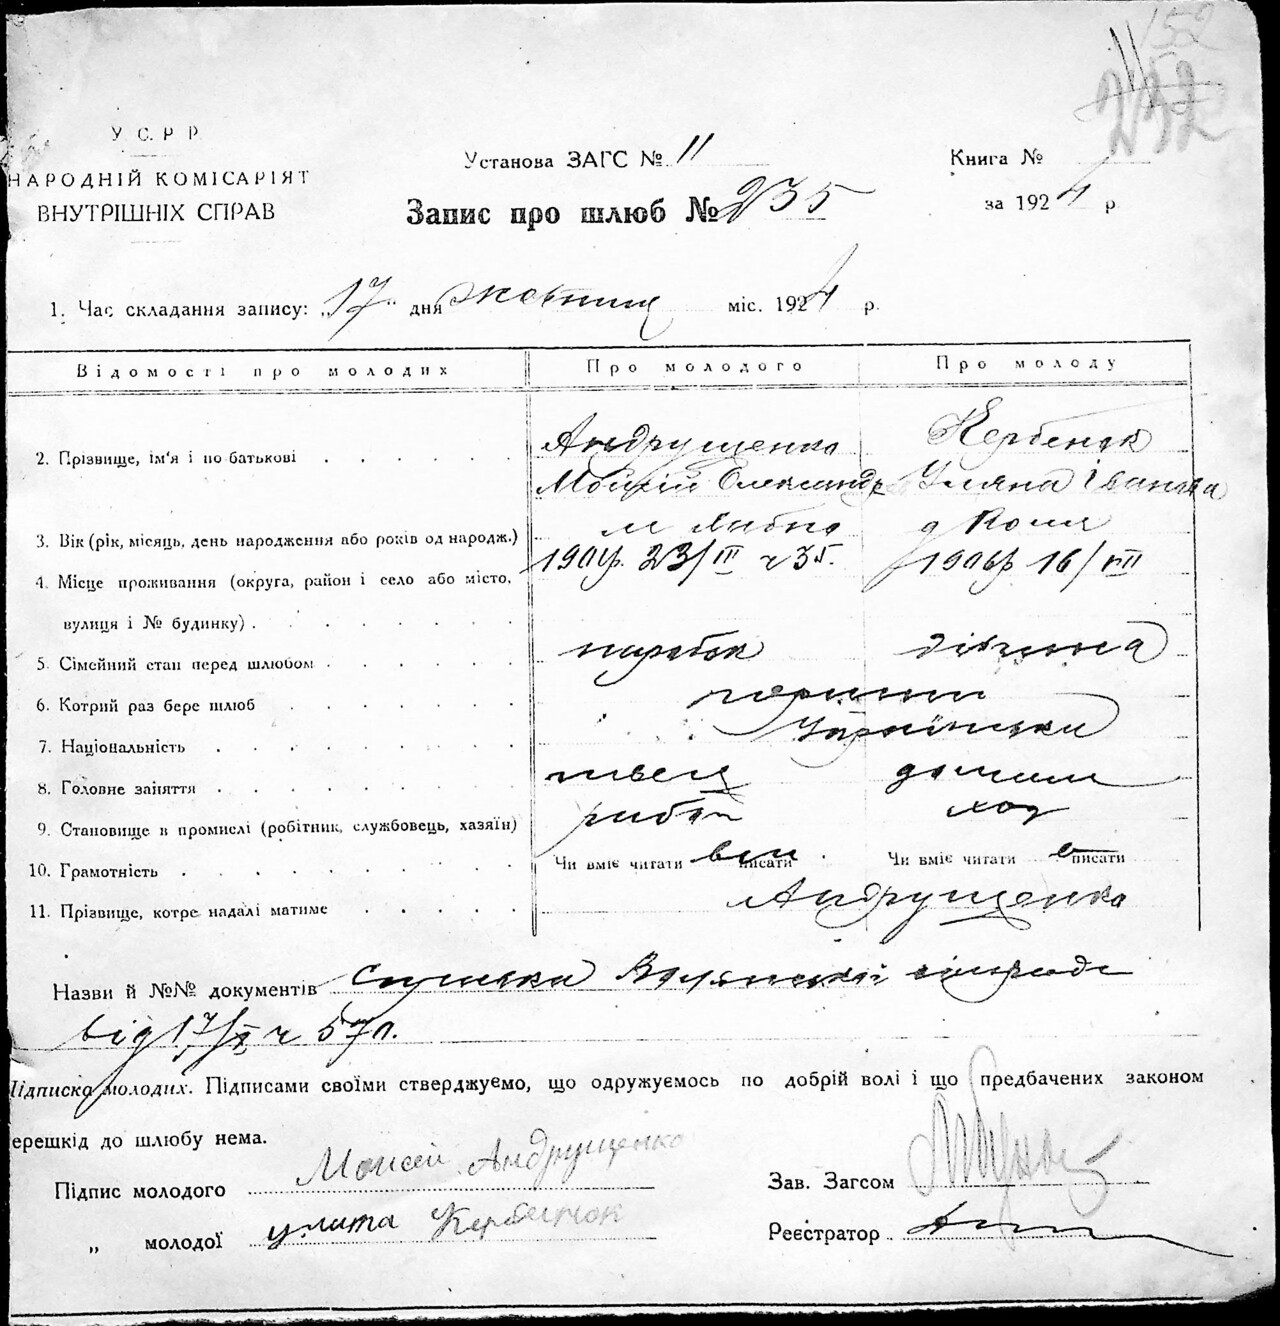 152
232
У С. Р Р
НАРОДНІЙ КОМІСАРІЯТ
ВНУТРІШНІХ СПРАВ
Установа ЗАГС № 11
Запис про шлюб № 235
Книга №
за 1924 р
1. Час складання запису: „17" дня жовтня міс. 1924 р.
Відомості про молодих Про молодого Про молоду
2. Прізвище, ім'я і по-батькові Андрущенко
Мойсей Олександр Уляна Іванова
3. Вік (рік, місяць, день народження або років од народж.) 190 р. 23/III ч 35. 1906 р 16/VII
4. Місце проживання (округа, район і село або місто,
вулиця і № будинку)
5. Сімейний стан перед шлюбом парубок дівчина
6. Котрий раз бере шлюб перший
7. Національність Українська
8. Головне заняття швець домашн
9. Становище в промислі (робітник, службовець, хазяїн) робіт ход
10. Грамотність Чи вміє читати вм писати Чи вміє читати в писати
11. Прізвище, котре надалі матиме Андрущенко
Назви й №№ документів сільради
від 17/X ч 570.
Підписка молодих. Підписами своїми стверджуємо, що одружуємось по добрій волі і що предбачених законом
ерешкід до шлюбу нема.
Підпис молодого Моисей Андрущенко
Зав. Загсом
„ молодої улита Кербенюк
Реєстратор